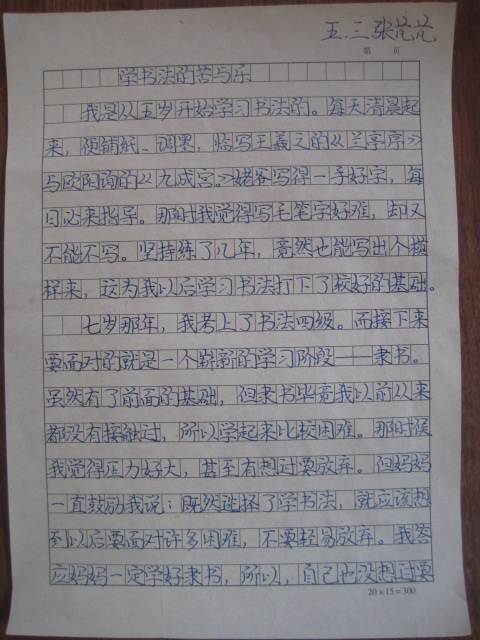 五.三 张芃芃
第 页
学书法的苦与乐
我是从五岁开始学习书法的。每天清晨起
来，便铺纸、调墨，临写王羲之的《兰亭序》
与欧阳询的《九成宫》。姥爷写得一手好字，每
日必来指导。那时我觉得写毛笔字好难，却又
不能不写。坚持练了几年，竟然也能写出个模
样来，这为我以后学习书法打下了较好的基础。
七岁那年，我考上了书法四级。而接下来
要面对的就是一个崭新的学习阶段——隶书。
虽然有了前面的基础，但隶书毕竟我以前从来
都没有接触过，所以学起来比较困难。那时候
我觉得压力好大，甚至有想过要放弃。但妈妈
一直鼓励我说：既然选择了学书法，就应该想
到以后要面对许多困难，不要轻易放弃。我答
应妈妈一定学好隶书，所以，自己也没想过要
20×15=300